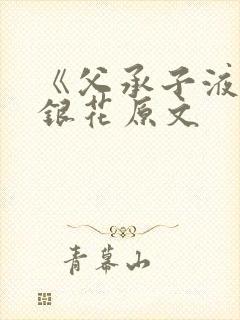 《父承子液
銀花原文
青幕山